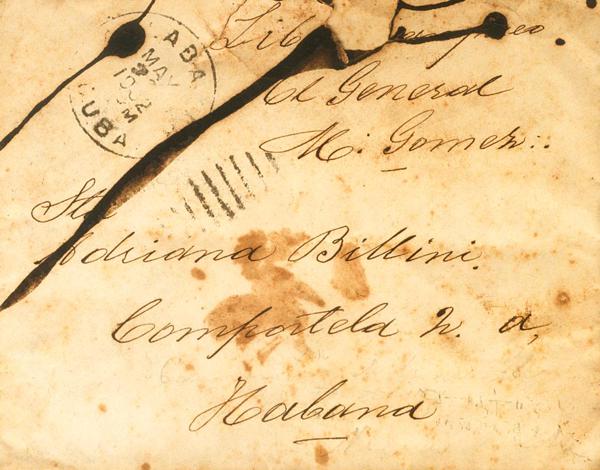 ABA
MAY
10
2
M
UBA
El General
M. Gomez.
Sta
Adriana Billini.
Compostela n. a,
Habana